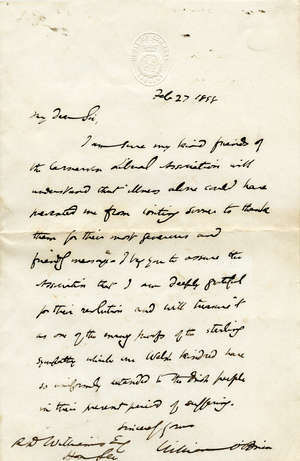 Feb 27 1888
My dear Sir,
I am sure my kind friends of
the Carnarvon Liberal Association will
understand that illness alone could have
prevented me from writing sooner to thank
them for their most generous and
friendly message. I beg you to assure the
Association that I am deeply grateful
for their resolution and will treasure it
as one of the many proofs of the sterling
sympathy which our Welsh kindred have
so uniformly extended to the Irish people
in their present period of suffering.
Sincerely yours
William O'Brien
R.D. Williams Esq
Hon Sec